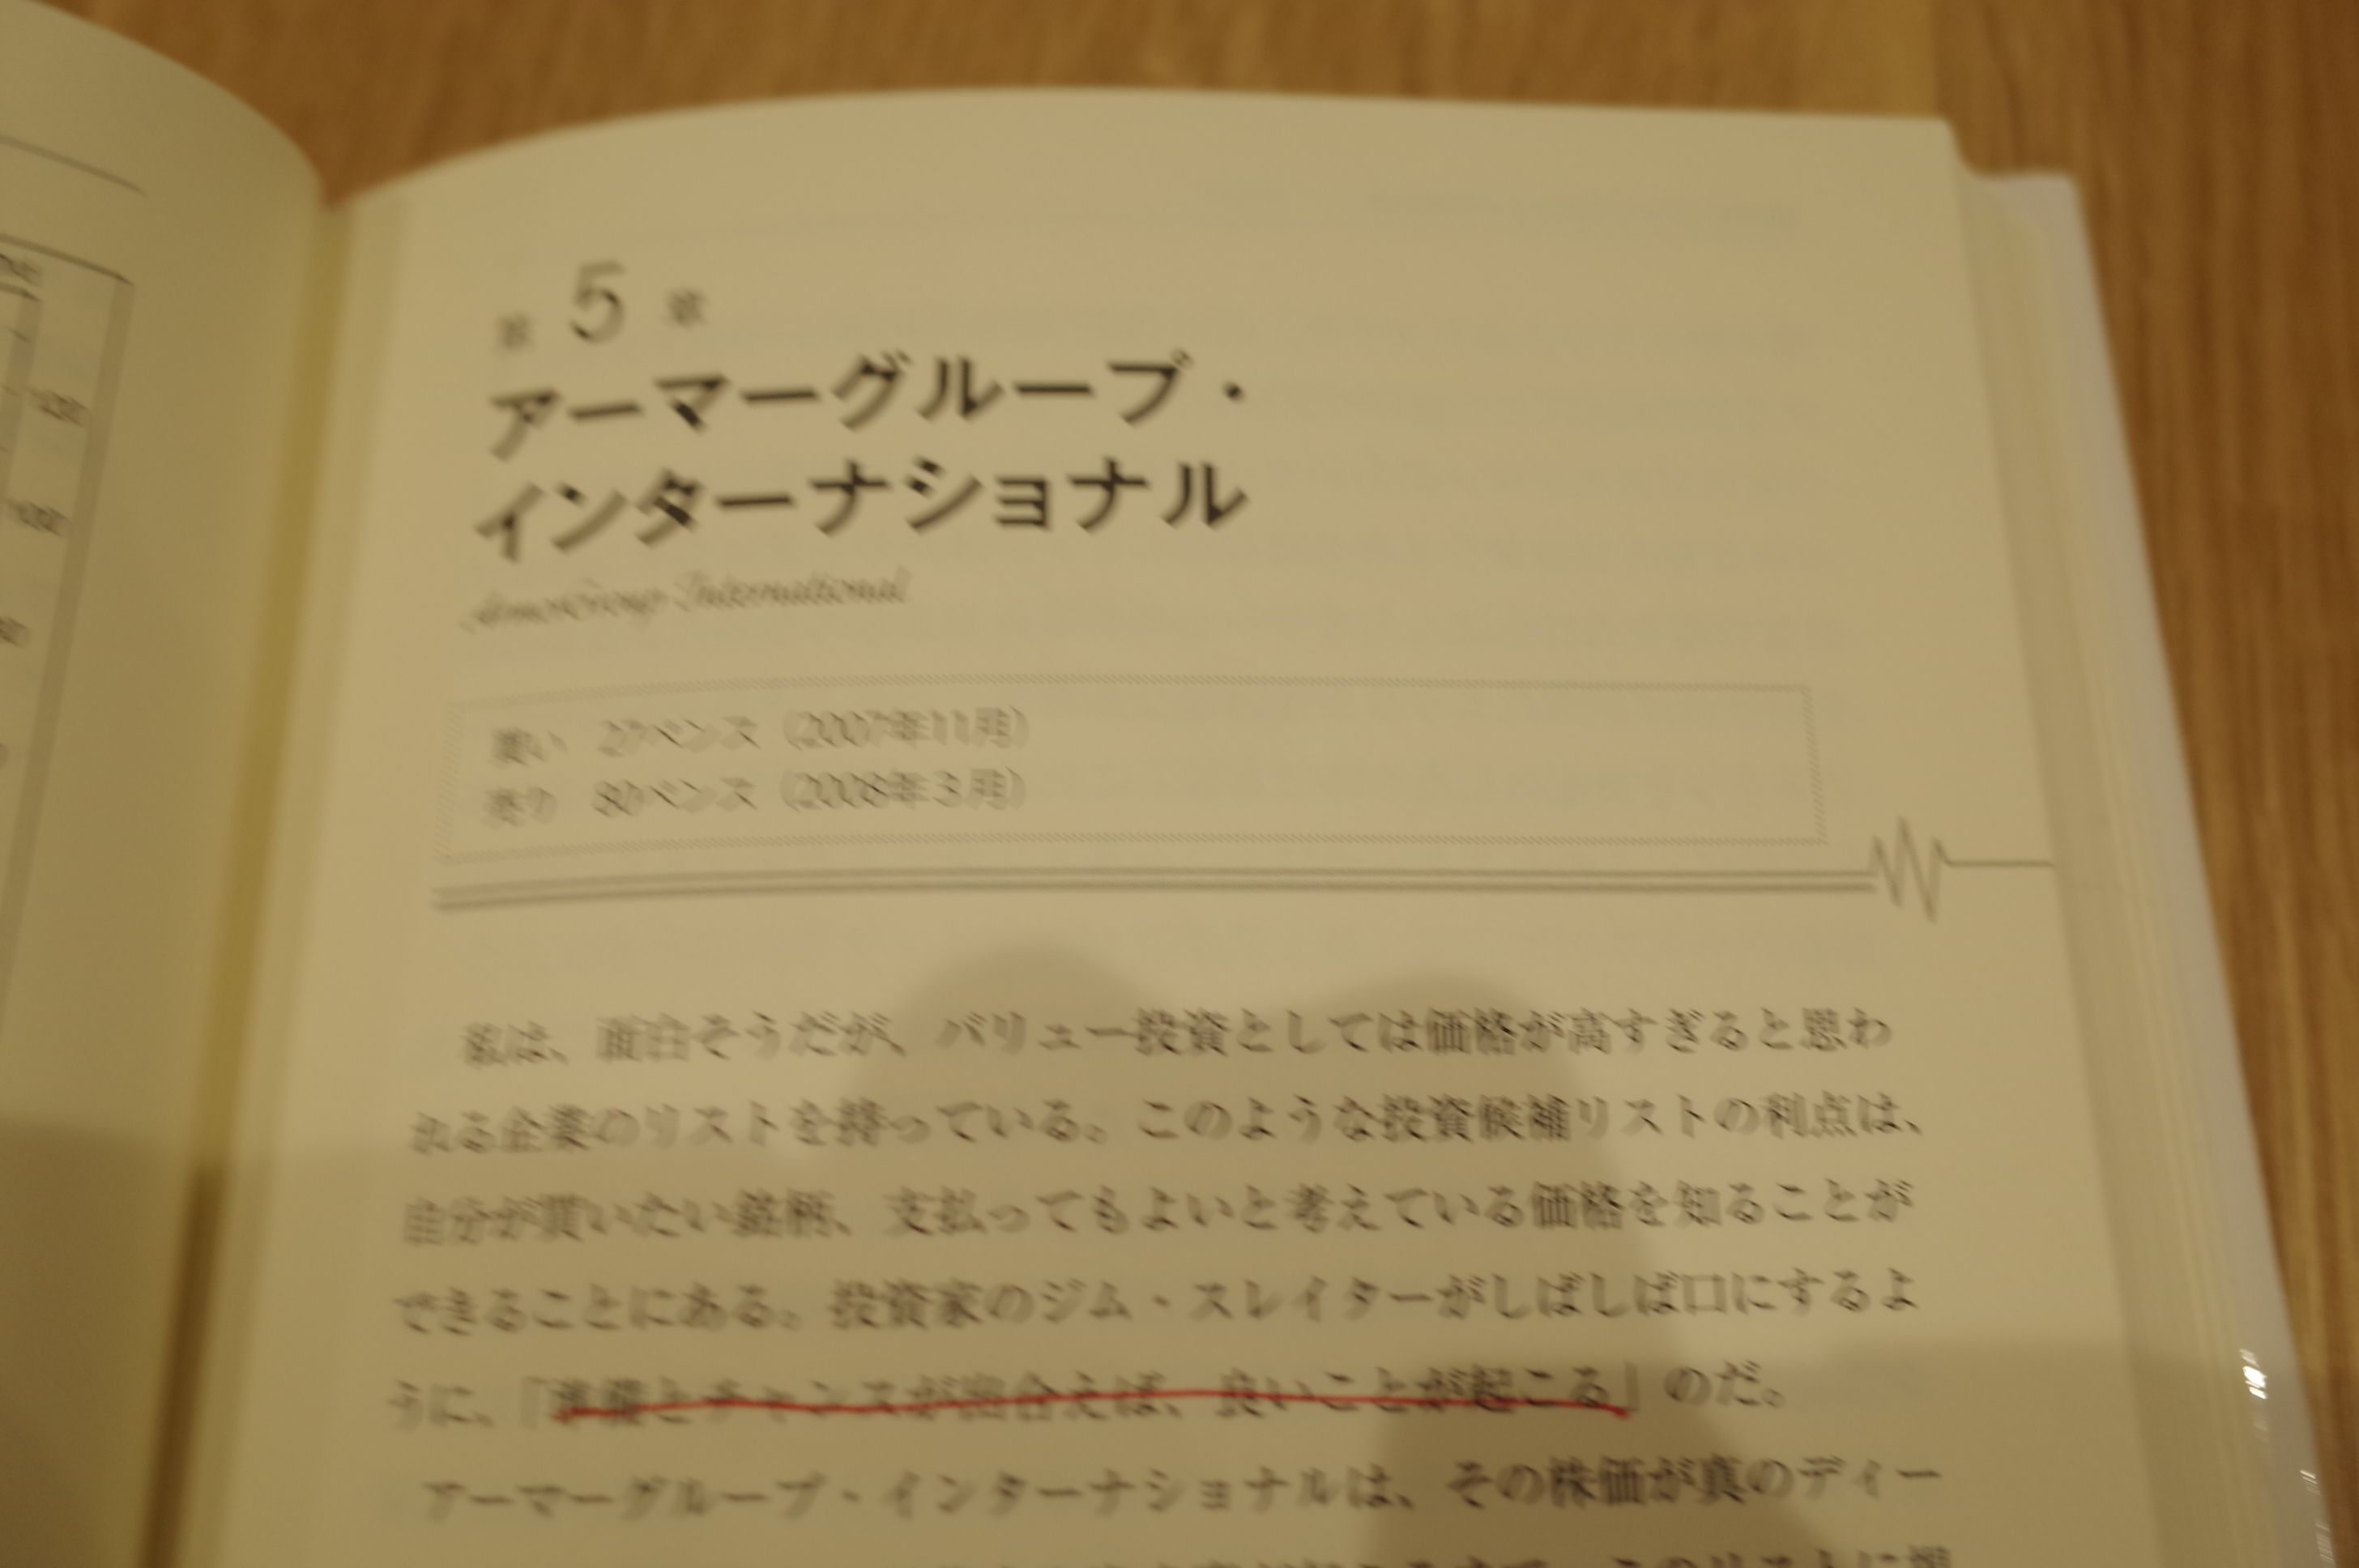 第5章
アーマーグループ・
インターナショナル
ArmorGroup International
買い 27ペンス（2007年11月）
売り 80ペンス（2008年3月）
私は、面白そうだが、バリュー投資としては価格が高すぎると思わ
れる企業のリストを持っている。このような投資候補リストの利点は、
自分が買いたい銘柄、支払ってもよいと考えている価格を知ることが
できることにある。投資家のジム・スレイターがしばしば口にするよ
うに、「準備とチャンスが出合えば、良いことが起こる」のだ。
アーマーグループ・インターナショナルは、その株価が真のディー